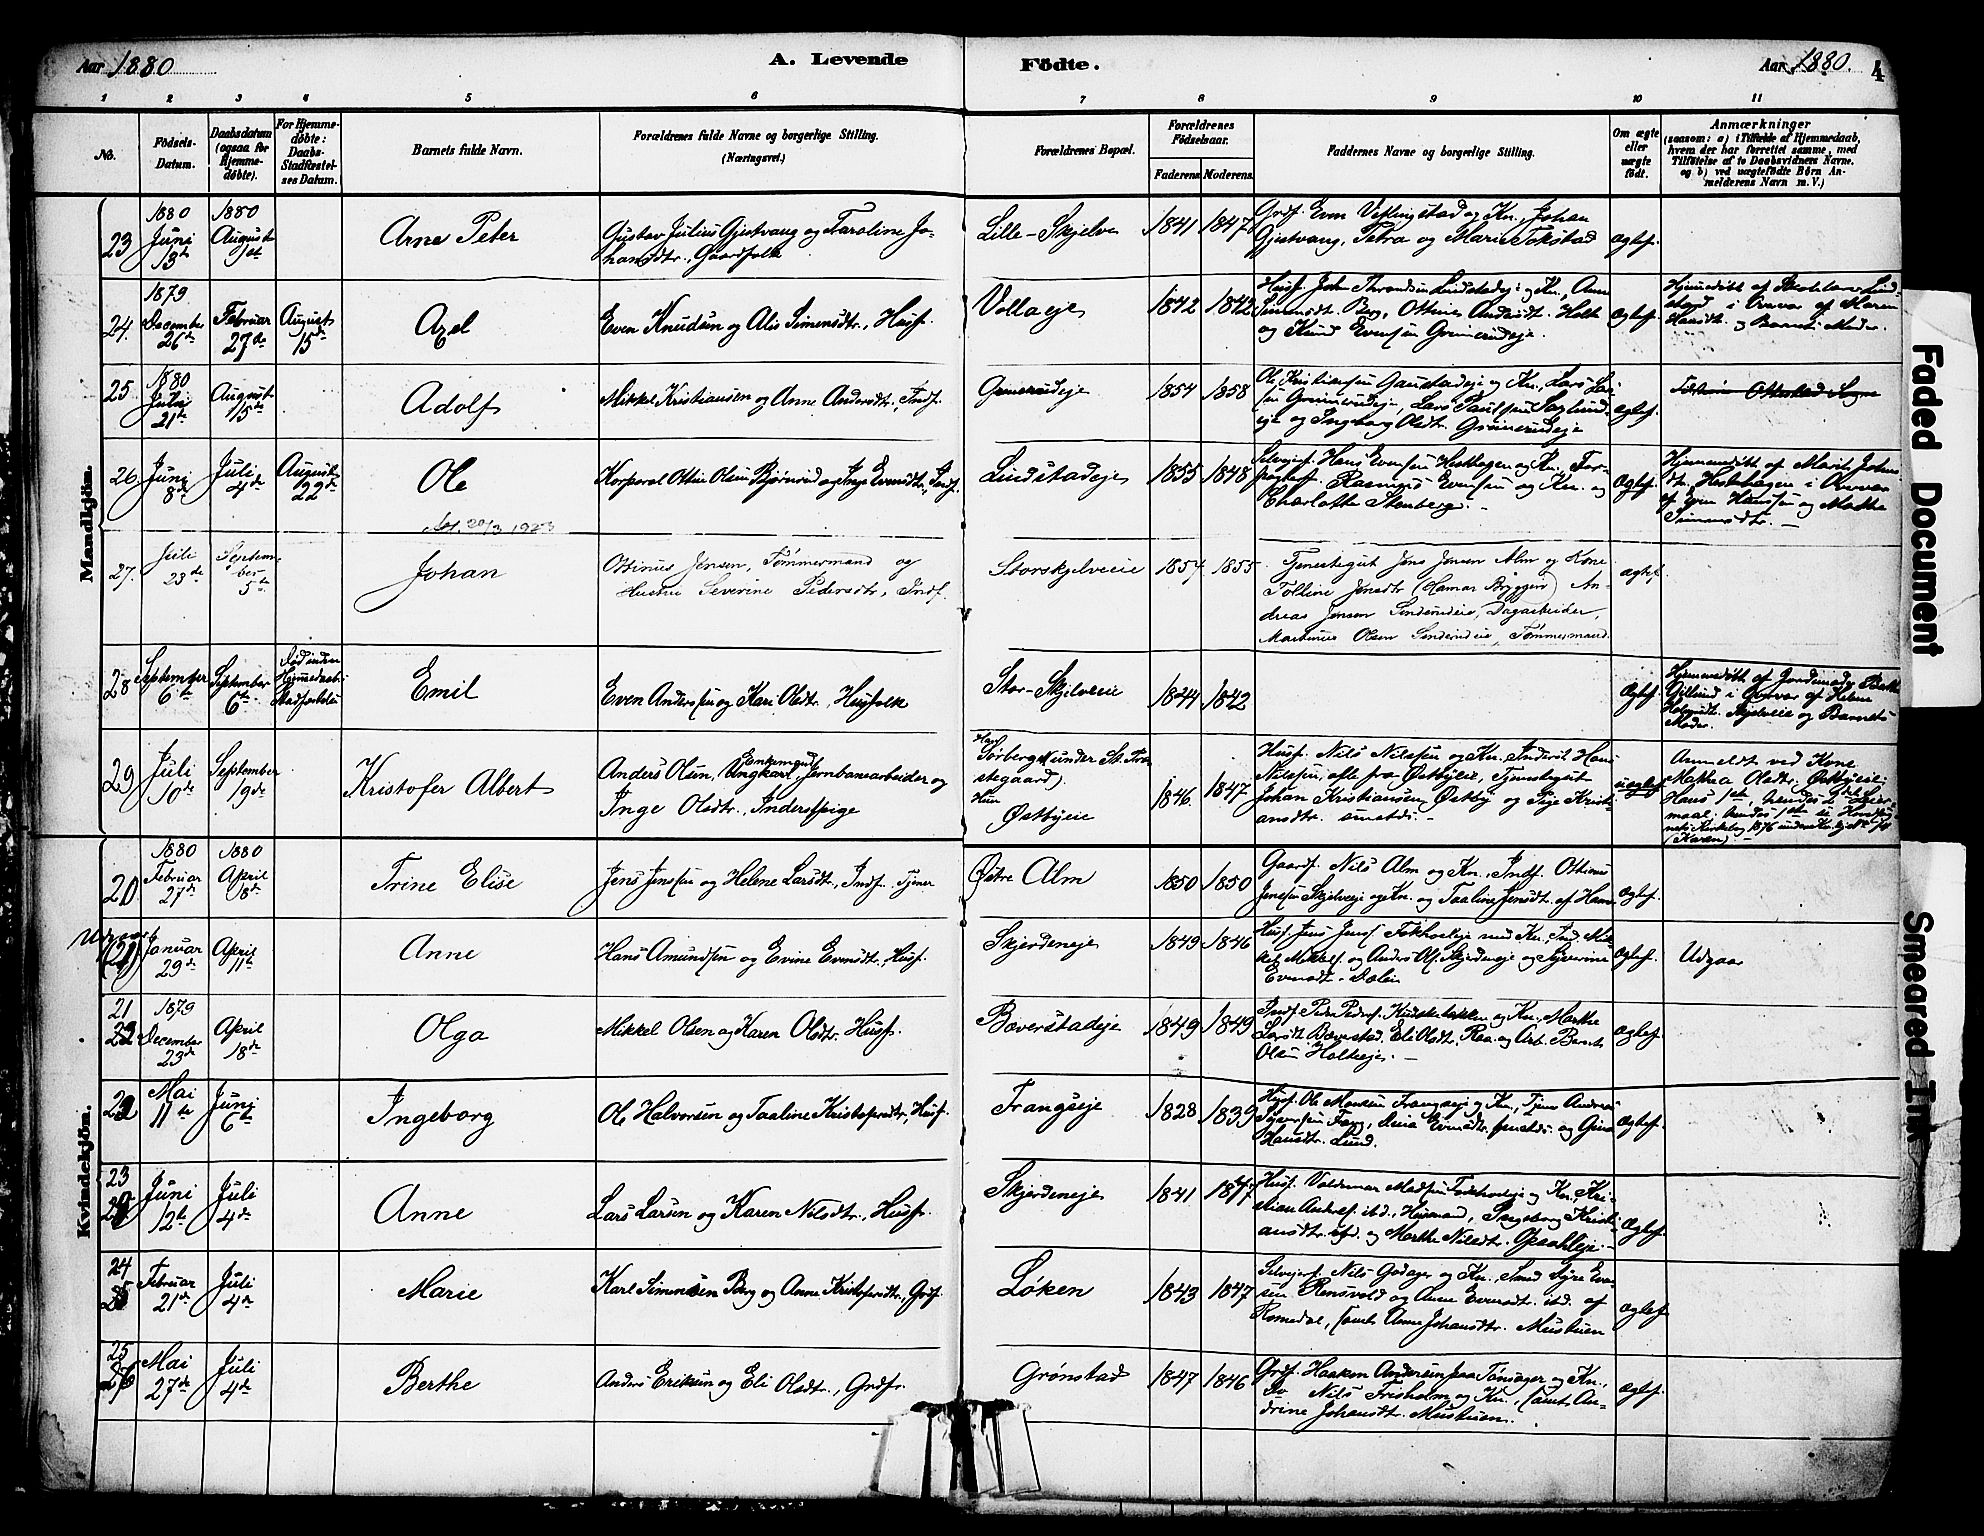 Aar 1880
A. Levende Födte.
Aar 1880. 4
1 2 3 4 5 6 7 8 9 10 11
No.
Födsels-Datum.
Daabsdatum (ogsaa for Hjemme-döbte).
For Hjemme-döbte: Daabs-Stadfæstel-ses Datum.
Barnets fulde Navn.
Forældrenes fulde Navne og borgerlige Stilling.
(Næringsvei.)
Forældrenes Bopæl.
Forældrenes Födselsaar.
Faderens Moderens
Faddernes Navne og borgerlige Stilling.
Om ægte eller uægte födt.
Anmærkninger
(saasom: a) i Tilfælde af Hjemmedaab,
hvem der har forrettet samme, med
Tilföielse af to Daabsvidners Navne.
og b) ved uægtefödte Börn An-
melderens Navn m. V.)
Mandkjön.
23 1880 Juni 13de 1880 August 1st
Arne Peter
Gustav Julius Gjestvang og Karoline Jo-
hansdtr., Gaardfolk
Lille-Skjelve 1841 1847
Grdf. Even Vestlingstad og Kn., Johan
Gjestvang, Petra og Marie Tokstad
Ægtef.
24. 1879 December 26de Februar 27de August 15de
Axel
Even Knudsen og Alis Simensdtr., Husf.
Vollaeje 1842 1842
Husf. John Throndsen Lindstadeje og Kn., Anne
Simensdt. Berg, Ottine Andersdt. Holt
og Knud Evensen Grimerudeje.
Ægtef.
Hjemmedöbt af
i Overvær af Maren
Hansdt. og Barnets Moder.
25. 1880 Juli 21de August 15de
Adolf
Mikkel Kristiansen og Anne Andersdt., Indf.
Grimerudeje 1854 1858
Ole Kristiansen Gaustadeje og Kn., Lars Lar-
sen Grimerudeje, Lars Paulsen Saglund-
eje og Ingeborg Olsdt. Grimerudeje
Ægtef.
Tilhörer Ottestad Sogn
26. Juni 8de Juli 4de August 22de
Ole
Korporal Ottin Olsen Bjørnerud og Inge Evensdtr., Indf.
Lindstadeje 1855 1848
Selvejerf. Hans Evensen Hestehagen og Kn., For-
Rasmus Evensen og Kn. og
Charlotte Stenberg. -
Ægtef.
Hjemmedöbt af Marit Johns-
dt. Hestehagen i Overvær
af Even Hanssen og Marthe
Simensdtr. -
Att. 20/3 1923
27. Juli 23de September 5te
Johan
Ottinus Jensen, Tømmermand og
Hustru Severine Pedersdtr, Indf.
Storskjelveeie 1857 1855
Tjenestegut Jens Jensen Alm og Kone
Olline Jensdtr (Hamar Bryggeri) An-
dreas Jensen Sinderudeie, Dagarbeider,
Martinus Olsen Sinderudeie, Tømmermand.
Ægtef.
28 September 6te September 6te
Död inden Hjemmedaabs Stadfæstelse
Emil
Even Anderssen og Kari Olsdtr., Husfolk
Stor-Skjelveeie 1844 1842
Ægtef.
Hjemmedöbt af Jordemoder Berthe
Gillund i Overvær af Helene
Skjelveeie og Barnets
Moder.
29 Juli 10de September 19de
Kristofer Albert
Anders Olsen, Ungkarl, Jernbanearbeider og
Inge Olsdtr., Inderstpige
Han
Sørberg (under St. Pre-
stegaard).
Hun
Østbyeie
1846. 1847
Husf. Nils Nilssen og Kn., Inderst Hans
Nilssen, alle fra Østbyeie, Tjenestegut
Johan Kristiansen Østby og Pige Kristi-
ansdtr. smstds. -
uægtef.
Anmeldt ved Kone
Mathea Olsdtr. Østbyeie.
Hans 1ste, hendes 2det Leier-
maal; hendes 1ste se
1876 under Kvindekj. No 74
(Karen).
Kvindekjön.
20 1880 Februar 27de 1880 April 18de
Trine Elise
Jens Jenssen og Helene Larsdt., Indf. Tjener
Østre Alm 1850 1850
Gaardf. Nils Alm og Kn., Indf. Ottinus
Jenssen Skjelveeje og Kn. og Paaline Jensdt. af Hamar
Ægtef.
(21) Januar 29de April 11te
Anne
Hans Amundsen og Evine Evensdt., Husf.
Skjerdeneje 1849 1846
Husf. Jens Jensf. Fokhoeleje med Kn., Ind. Mik-
kel Mikkels. og Anders Ols. Skjerdeneje og Syverine
Evensdt. Dælin
Ægtef.
Udgaar
21 22 1879 December 23de April 18de
Olga
Mikkel Olsen og Karen Olsdtr. Husf.
Bæverstadeje 1849 1849
Indf. Peder Peders. Kuskebakken og Kn., Marthe
Larsdt. Bæverstad. Eli Olsdt. Raa og Arb. Bernt
Olsen Holteeje. -
Ægtef.
22 Mai 11te Juni 6te
Ingeborg
Ole Halvorsen og Paaline Kristofersdtr., Husf.
Frangseje 1828 1839
Husf. Ole Monsen Frangseje og Kn., Tjener Andreas
Syversen Fæug, Lina Evensdtr. smstds. og Gina
Hansdtr. Lund.
Ægtef.
23 Juni 12te Juli 4de
Anne
Lars Larsen og Karen Nilsdtr., Husf.
Skjerdeneje 1841 1847
Husf. Valdemar Madsen Fokhoeleje og Kn., Kri-
stian Anders. ibd., Husmand, Ingeborg Kristi-
ansdtr. ibd. og Marthe Nilsdtr. Opsahleje. -
Ægtef.
24 Februar 21de Juli 4de
Marie
Karl Simensen Berg og Anne Kristofersdtr., Grdf.
Løken 1843 1847
Selvejerf. Nils Godager og Kn., Smed Syver Even-
sen Rensvold og Anne Evensdtr. ibd. af
Romedal, samt Anne Johansdtr. Mustuen
Ægtef.
25 Mai 27de Juli 4de
Berthe
Anders Eriksen og Eli Olsdtr., Grdfr.
Grønstad 1847 1846
Grdf. Haaken Andersen paa Tønsager og Kn.,
Do Nils Frisholm og Kn., samt An-
drine Johansdt. Mustuen.
Ægtef.
Faded Document
Smeared Ink